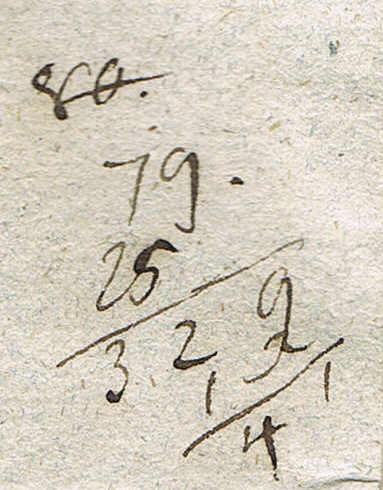 80.
79.
25
3 2 9 2
1 1
4